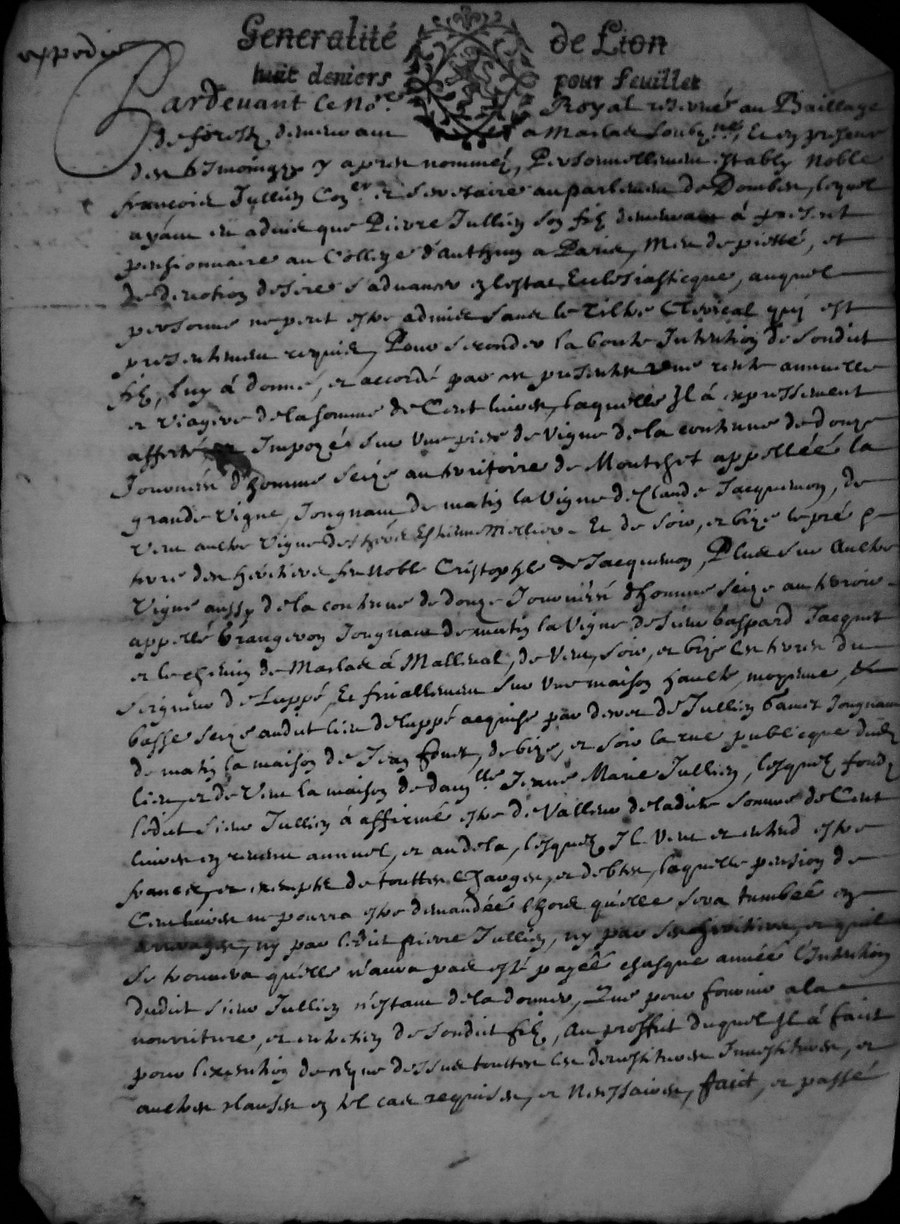 expedie
Generalité de Lion
huit deniers pour feuillet
Pardevant le No.re Royal reservé au Baillage
de forestz demeurant a Maslas soubz.né, Et en presence
des tesmoingz y apres nommés, Personnellement estably Noble
francois Jullien Con.er et Secretaire au parlement de Dombes, lequel
ayant eu advis que Pierre Jullien son filz demeurant à present
pensionnaire au College d'Authun a Paris, Meu de pietté, et
de devotion desire s'advancer en l'estat Ecclesiasticque, auquel
personne ne peut estre admis sans le Tiltre Clerical qui est
presentement requis, Pour seconder la bonne Intention de sondict
filz, luy à donné, et accordé par ces presentes une rente annuelle
et viagere de la somme de Cent livres, laquelle Il à expressement
affecté Impozée sur une piece de vigne de la contenue de douze
Journées d'homme size au territoire de Montchot appellée la
grande vigne, Joignant de matin la vigne de Claude Jacquemon, de
vent aultre vigne des hers Estienne Mellier. Et de soir, et bize le pré
terre des heritiers feu Noble Cristophle de Jacquemon, Plus sur Aultre
vigne aussy de la contenue de douze Journées d'homme size au terroir
appellé brangevon Joignant de matin la vigne de sieur Gaspard Jacquet
et le chemin de Maslas à Malleval, de vent, soir, et bize les terres du
seigneur de Luppé, Et finallement sur une maison haulte, moyenne, &
basse size audit lieu de luppé acquise par de Jullien Joignant
de matin la maison de Jean fout, de bize, et soir la rue publicque dudit
lieu, et de vent la maison de dam.lle Jeanne Marie Jullien, lesquelz fondz
ledit sieur Jullien à affirmé estre de valleur de ladite somme de Cent
livres en revenu annuel, et au dela, lesquelz Il veut et entend estre
francs, et exempts de touttes charges, et debtes, laquelle pension de
Cent livres ne pourra estre demandée lhors qu'elle sera tumbée en
arrerages, ny par ledit pierre Jullien, ny par ses heritiers, et qu'il
se trouvera qu'elle n'aura pas esté payée chasque année l'Intention
dudit sieur Jullien n'estant de la donner, Que pour fournir a la
nourriture, et entretien de sondict filz, Au proffit duquel Il à fait
pour l'execution de ce que dessus touttes les devestitures Investitures, et
aultres clauses en tel cas requises, et Necessaires, faict, et passé